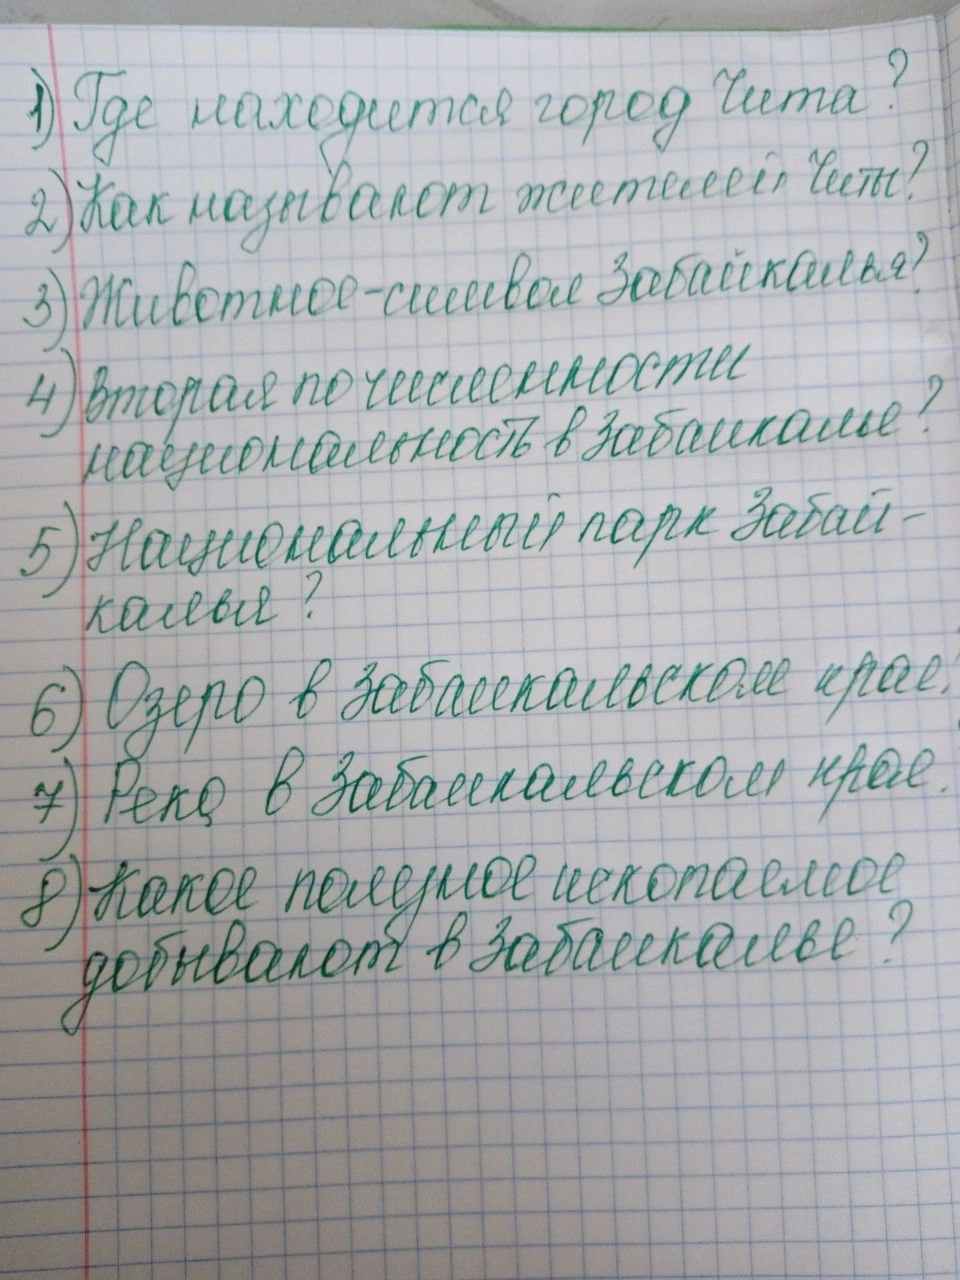 1) Где находится город Чита?
2) Как называют жителей Читы?
3) Животное-символ Забайкалья?
4) Вторая по численности
национальность в Забайкалье?
5) Национальный парк Забай-
калья?
6) Озеро в Забайкальском крае.
7) Река в Забайкальском крае.
8) Какое полезное ископаемое
добывают в Забайкалье?